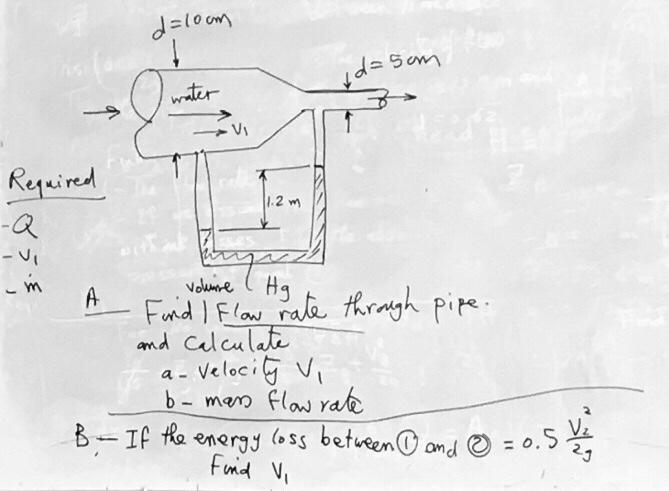 d=10cm
d=5cm
water
V₁
1.2 m
Required
- Q
- V₁
- ṁ
Hg
volume
A — Find | Flow rate through pipe.
and Calculate
a - Velocity V₁
b - mass flow rate
B. — If the energy loss between ① and ② = 0.5 V₂²/2g
Find V₁